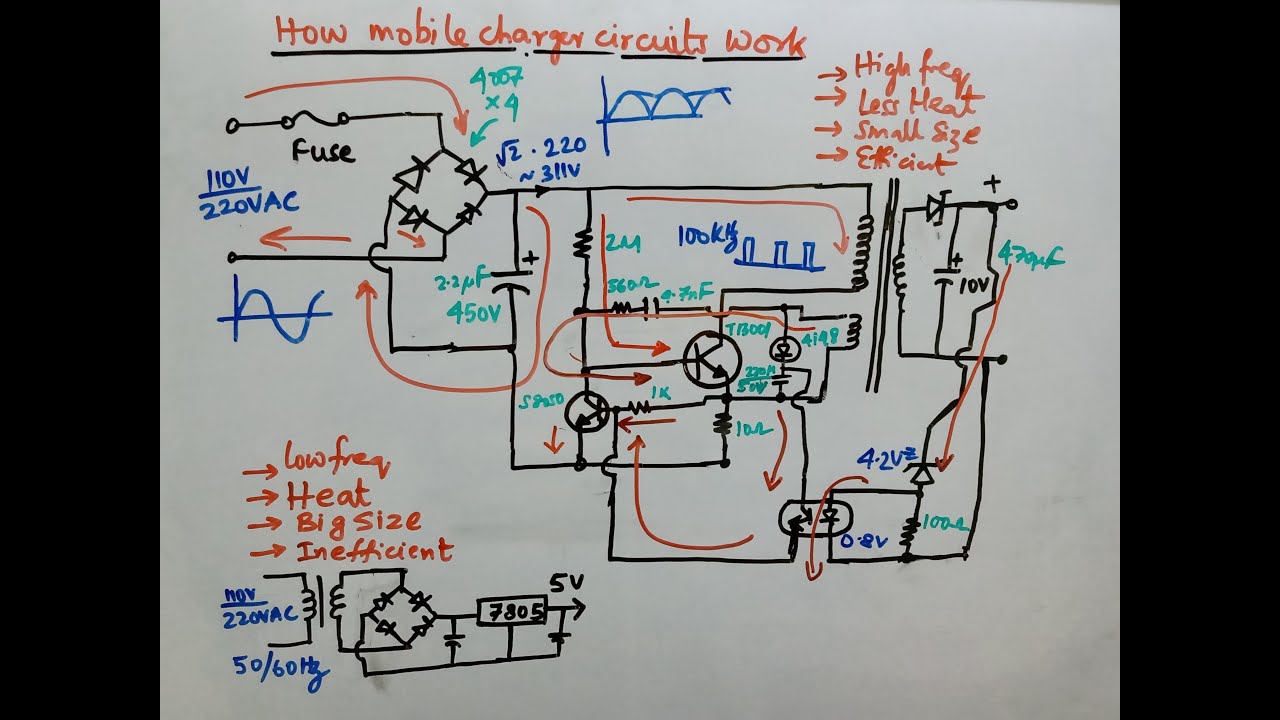 How mobile charger circuits work
4007
×4
→ High freq
→ Less Heat
→ Small Size
→ Efficient
Fuse
√2 . 220
~ 311V
110V
220VAC
100KHz
2M
560Ω
4.7nF
470µF
+
+
+
10V
2.2µF
450V
T13001
4148
50V
S8050
1K
10Ω
4.2V
Z
100Ω
0.8V
→ low freq
→ Heat
→ Big Size
→ Inefficient
110V
220VAC
5V
7805
50/60Hz